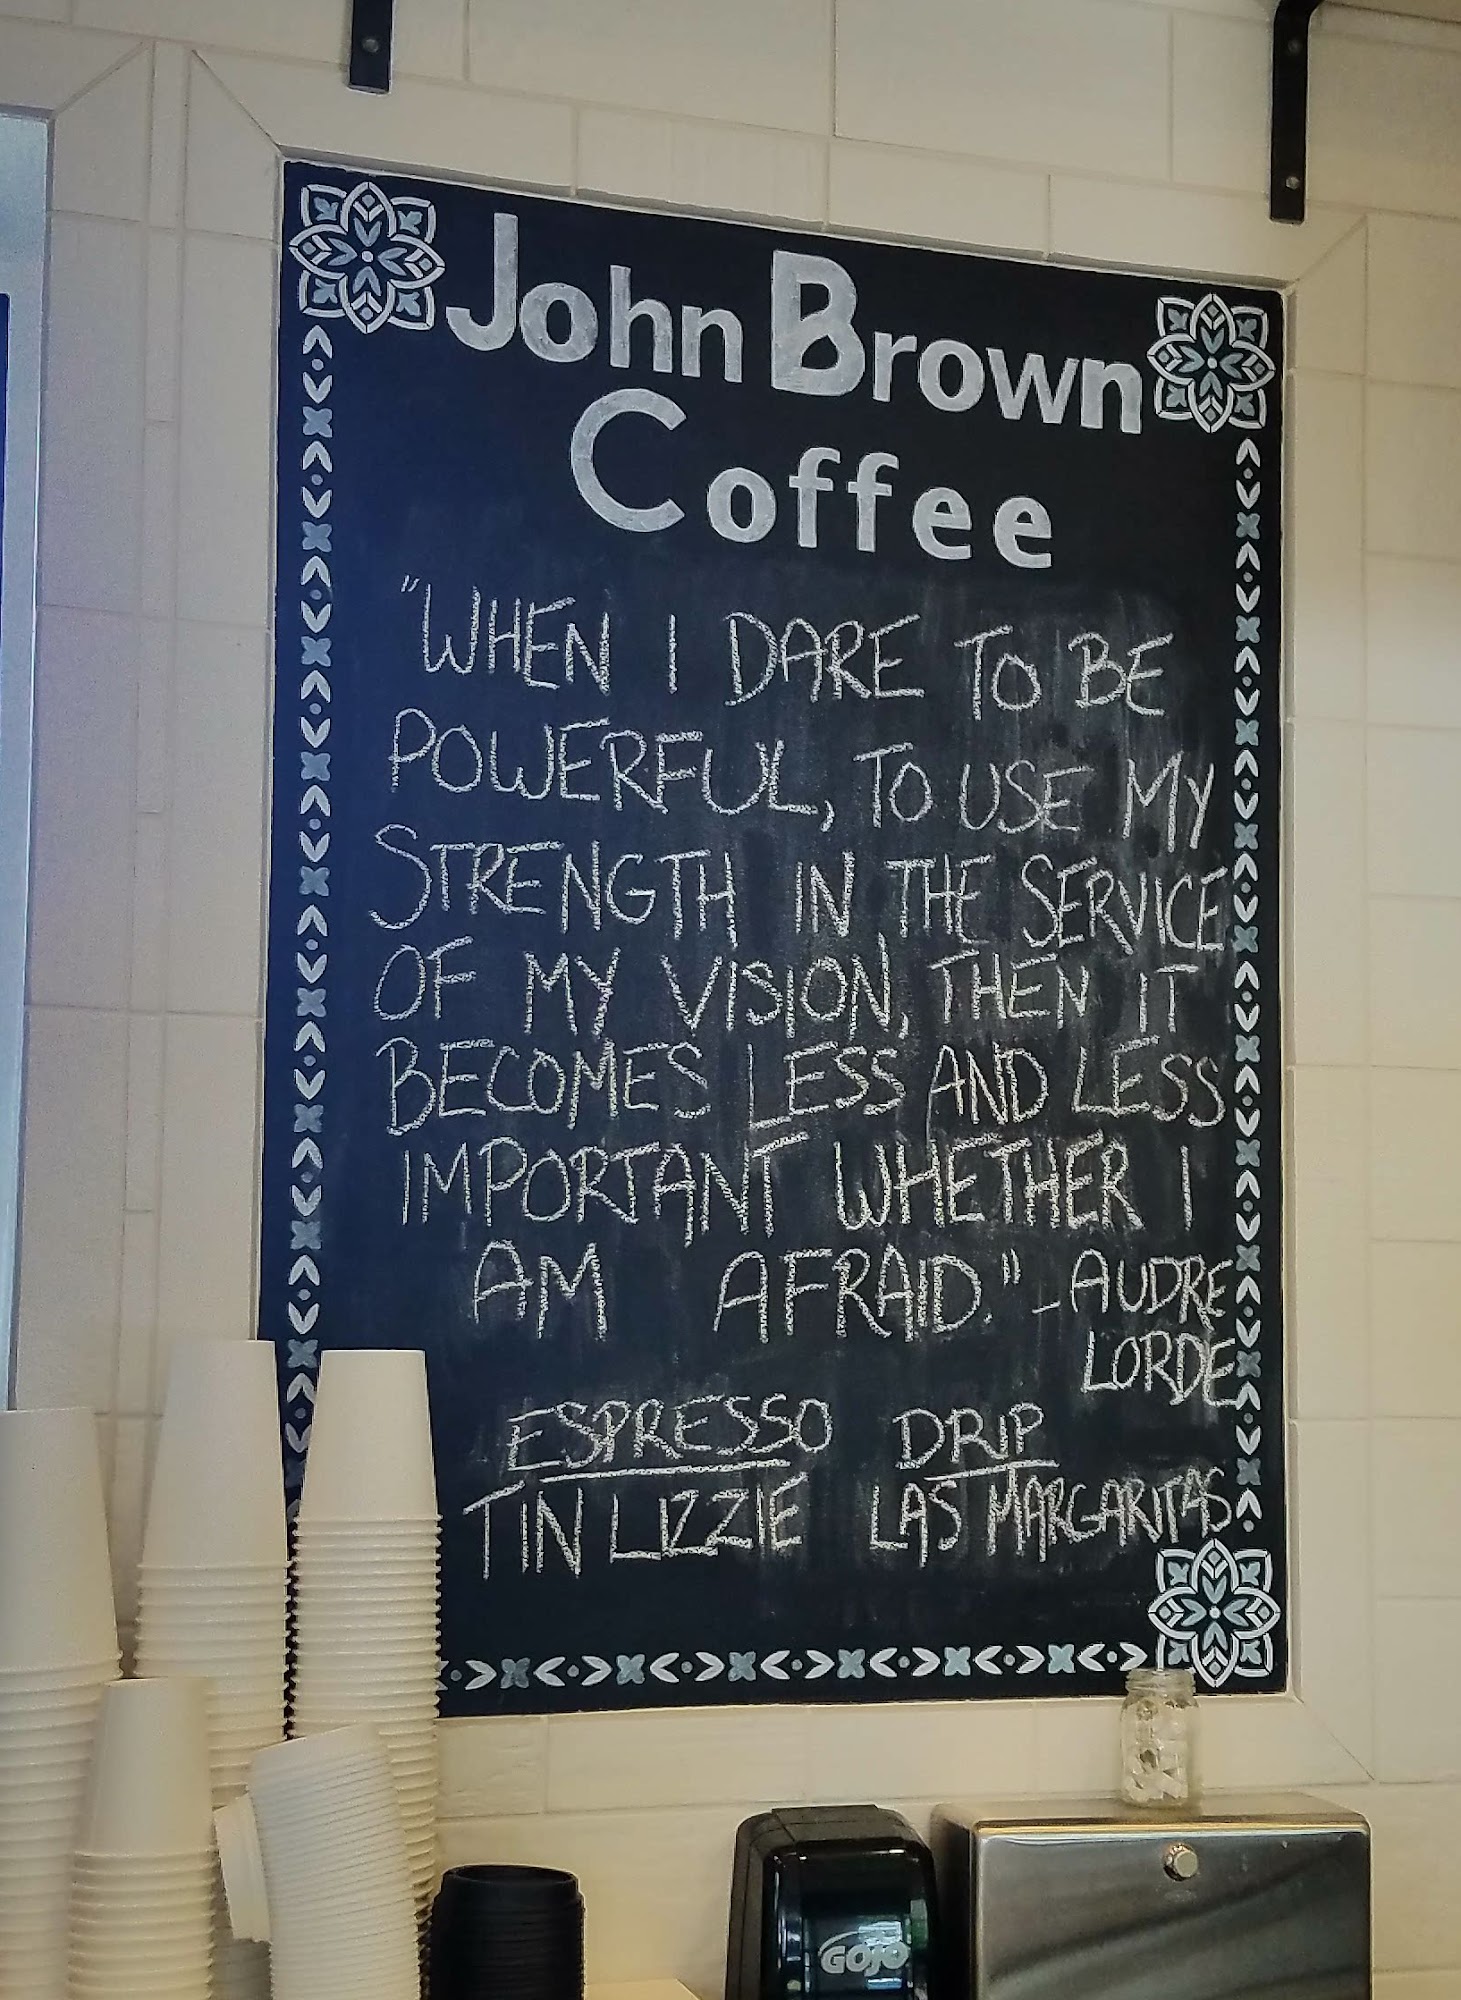 John Brown
Coffee
"WHEN I DARE TO BE
POWERFUL, TO USE MY
STRENGTH IN THE SERVICE
OF MY VISION, THEN IT
BECOMES LESS AND LESS
IMPORTANT WHETHER I
AM AFRAID." - AUDRE
LORDE
ESPRESSO DRIP
TIN LIZZIE LAS MARGARITAS
GOJO